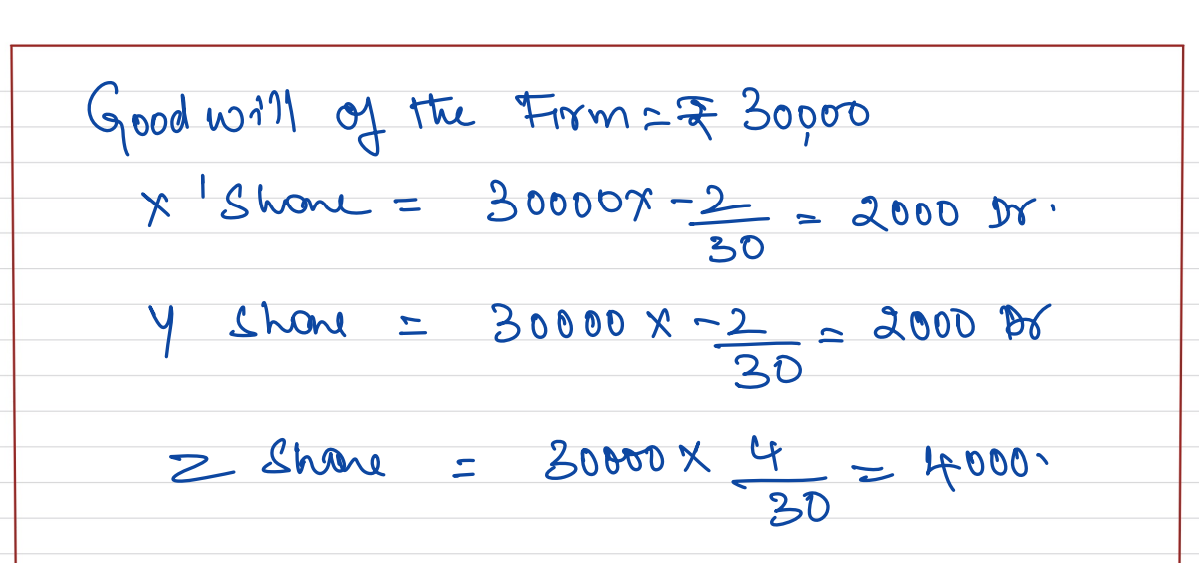 Goodwill of the Firm = ₹ 30,000
X 's Share = 30000 x -2/30 = 2000 Dr.
Y Share = 30000 x -2/30 = 2000 Dr
Z Share = 30000 x 4/30 = 4000.